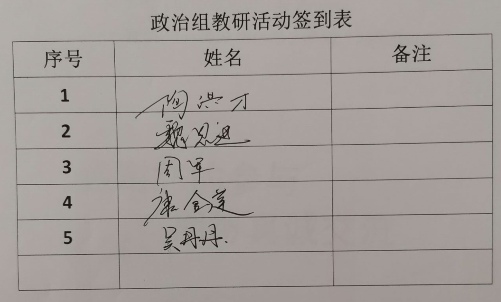 政治组教研活动签到表
序号 姓名 备注
1 陶洪才
2 魏思进
3 周军
4 唐金莲
5 吴丹丹